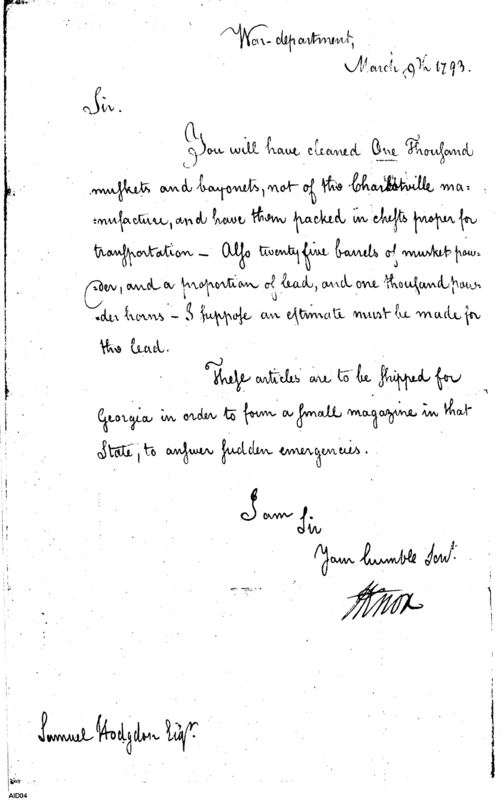 War-department,
March 9th 1793.
Sir.
You will have cleaned One Thousand
muskets and bayonets, not of the Charlotville ma=
=nufacture, and have them packed in chests proper for
transportation – Also twenty five barrels of musket pow=
=der, and a proportion of lead, and one thousand pow=
=der horns – I suppose an estimate must be made for
the lead.
These articles are to be shipped for
Georgia in order to form a small magazine in that
State, to answer sudden emergencies.
I am Sir
Your humble Servt.
HKnox
Samuel Hodgdon Esqr.
AID04